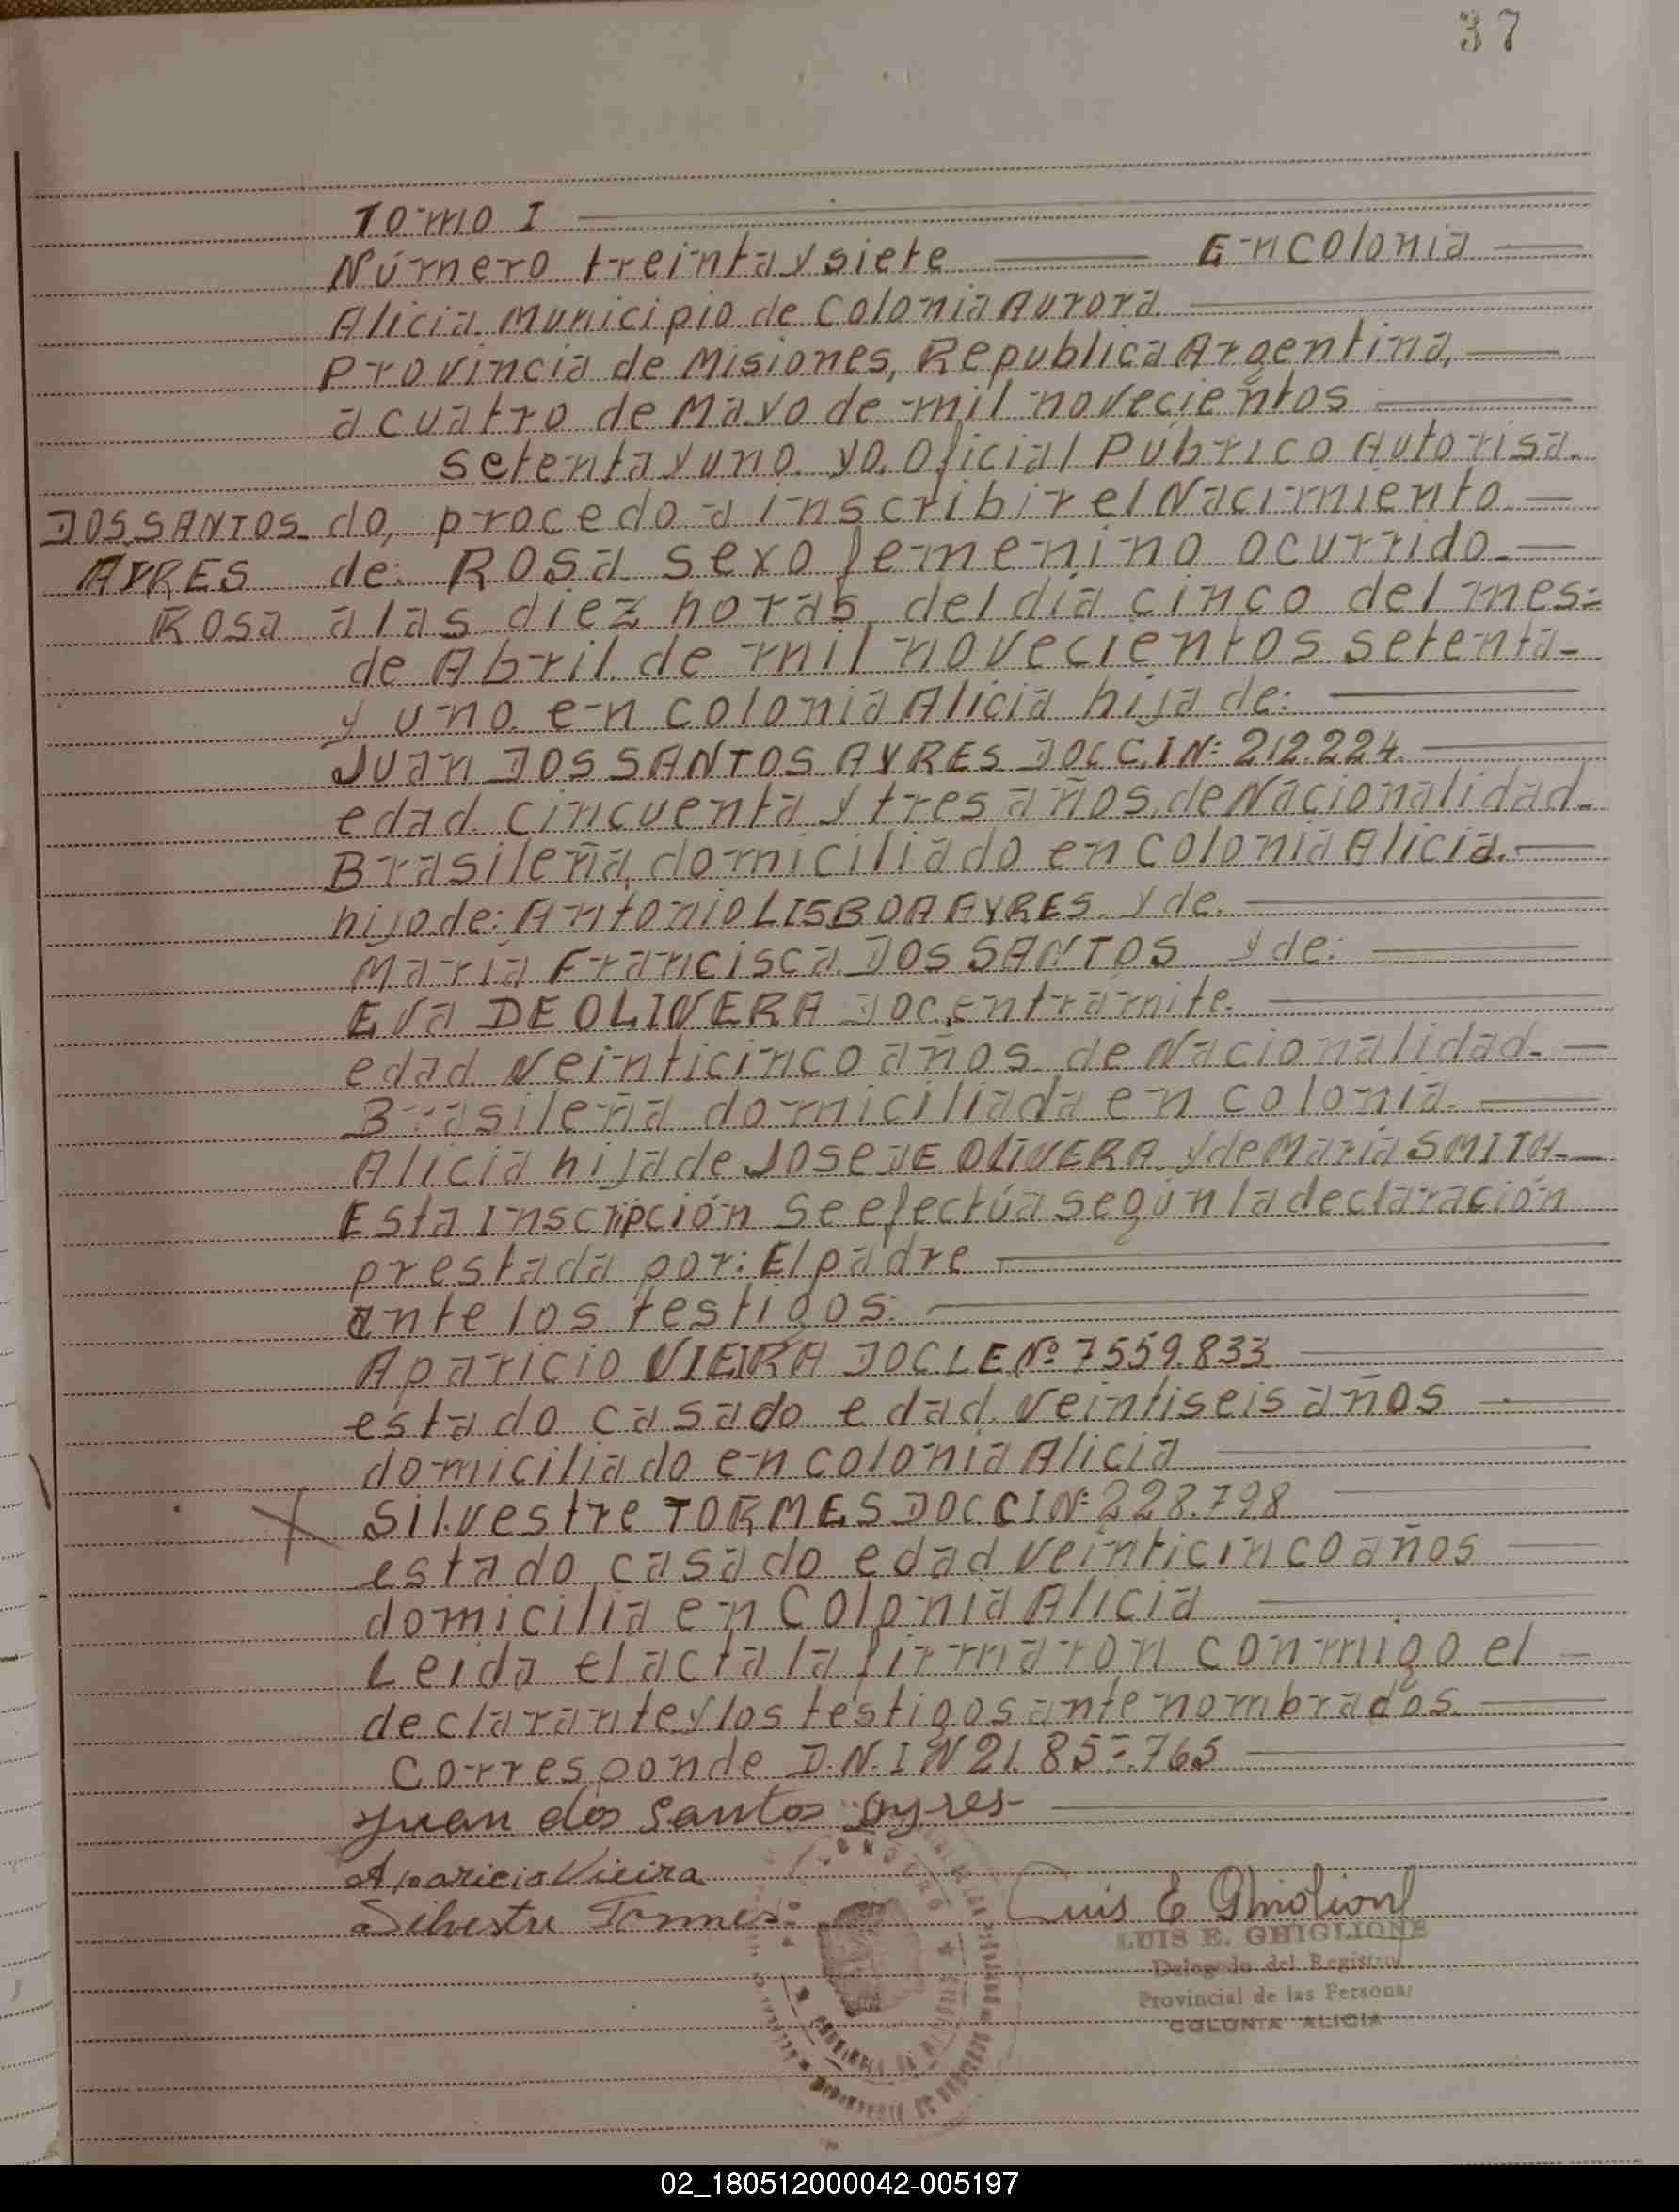 37
Tomo I
Número treinta y siete En Colonia
Alicia Municipio de Colonia Aurora.
Provincia de Misiones, Republica Argentina,
a cuatro de Mayo de mil novecientos
setenta y uno. yo, Oficial Púbrico Autorisa-
DOS SANTOS do, procedo a inscribir el Nacimiento
AYRES de: Rosa sexo femenino ocurrido
Rosa a las diez horas del día cinco del mes
de Abril. de mil novecientos setenta
y uno. en colonia Alicia hija de:
Juan DOS SANTOS AYRES DOC C.I N: 212.224.
edad. cincuenta y tres años, de Nacionalidad
Brasileña, domiciliado en colonia Alicia.
hijo de: Antonio LISBOA AYRES. y de.
María Francisca. DOS SANTOS y de:
Eva DE OLIVERA Doc. en tramite.
edad veinticinco años de Nacionalidad.
Brasileña domiciliada en colonia.
Alicia hija de José DE OLIVERA. y de María SMITH
Esta Inscripción se efectúa según la declaración
prestada por: El padre
ante los testigos:
Aparicio VIEIRA DOC LE Nº 7559.833
estado casado edad. veintiseis años
domiciliado en colonia Alicia
Silvestre TORMES DOC C I Nº 228.798
estado casado edad veinticinco años
domicilia en Colonia Alicia
Leida el acta la firmaron conmigo el
declarante y los testigos ante nombrados.
Corresponde D.N.I N 21.857.765
Juan dos Santos Ayres
Aparicio Vieira
Silvestre Tormes
Luis E Ghiglione
LUIS E. GHIGLIONE
Delegado del Registro
Provincial de las Personas
COLONIA ALICIA
02_180512000042-005197